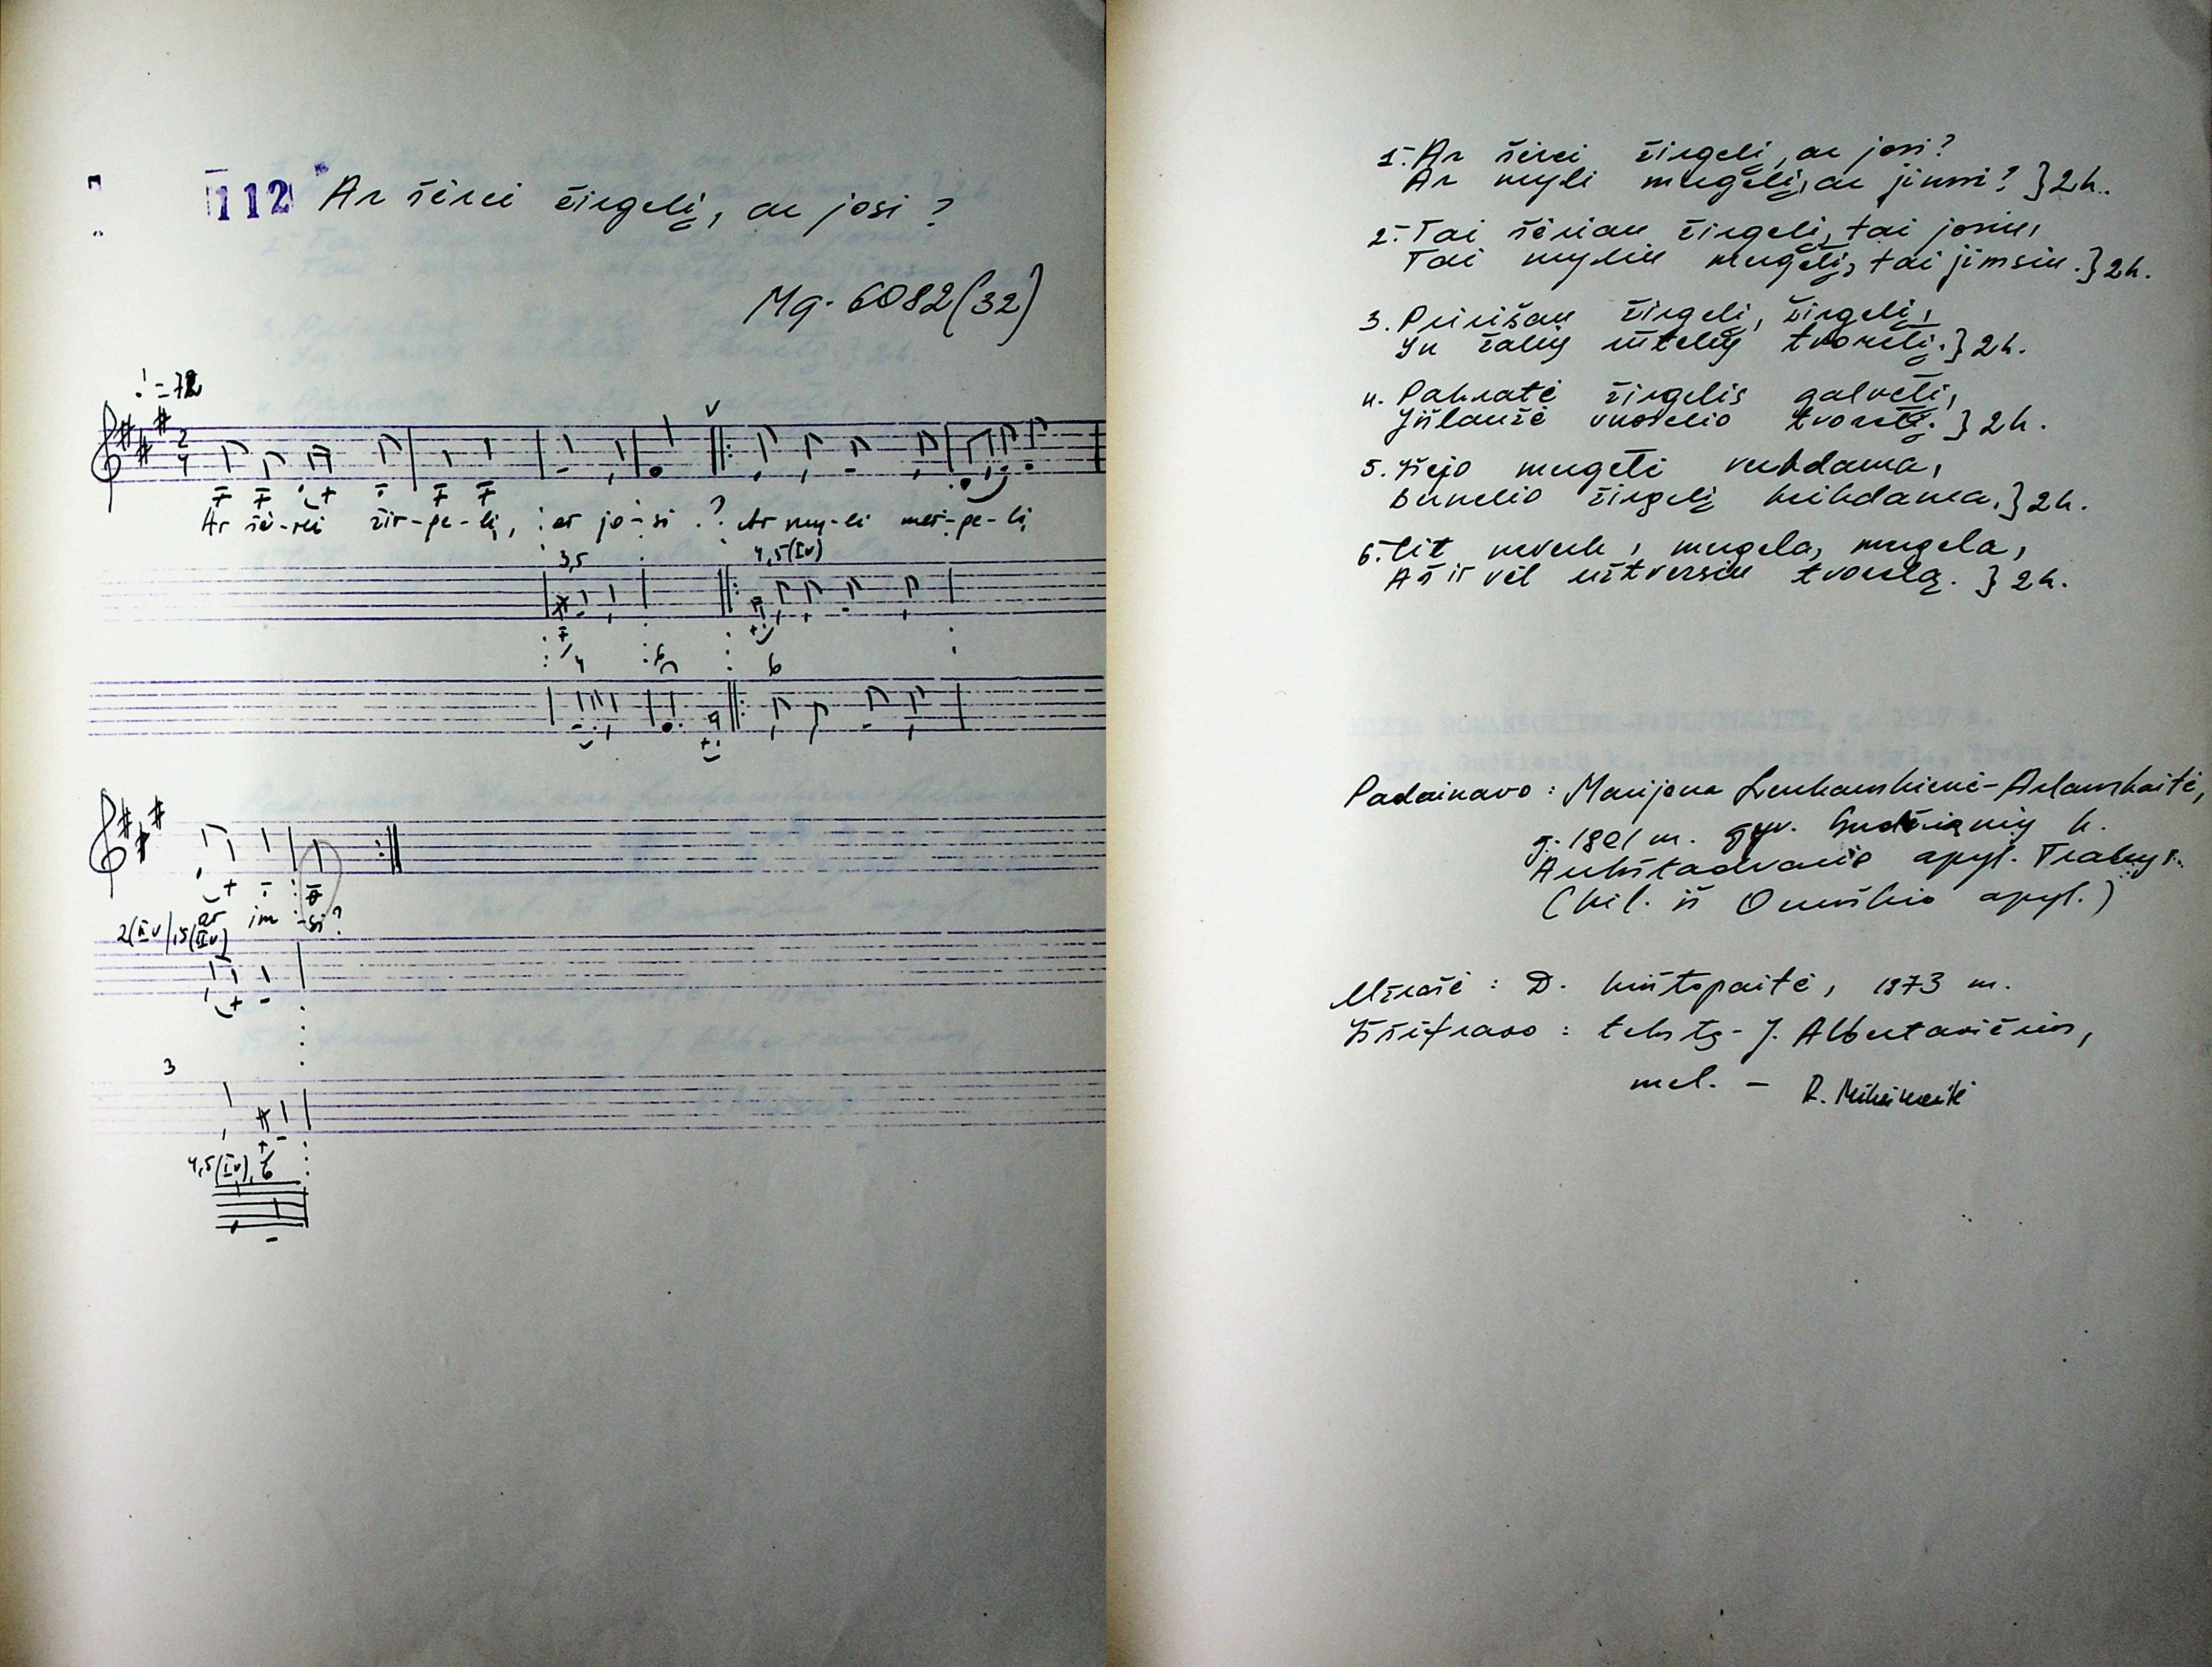 112 Ar šėrei žirgelį, ar josi?
Mg. 6082(32)
♩=72
2
4
Ar šė-rei žir-ge-lį, ar jo-si? Ar my-li mer-ge-lį
3,5
4,5(Iv)
4
6
6
ar im-si?
2(IIv),5(IIv)
3
4,5(Iv),6
1. Ar šėrei žirgelį, ar josi?
Ar myli mergelį, ar jimsi? } 2k.
2. Tai šėriau žirgelį, tai josiu,
Tai myliu mergelį, tai jimsiu. } 2k.
3. Pririšau žirgelį, žirgelį,
Yu žalių ūtelių tvorelį. } 2k.
4. Pakratė žirgelis galvelį,
Yšlaužė uošvelio tvorelį. } 2k.
5. Išejo mergelė verkdama,
Bernelio žirgelį keikdama. } 2k.
6. Cit neverk, mergela, mergela,
Aš ir vėl užtversiu tvorelą. } 2k.
Padainavo: Marijona Lenkauskienė-Arlauskaitė,
g. 1891 m. gyv. k.
Aukštadvario apyl. Trakų r.
(kil. iš Onuškio apyl.)
Užrašė: D. Krištopaitė, 1973 m.
Iššifravo: tekstą - J. Albertavičius,
mel. -